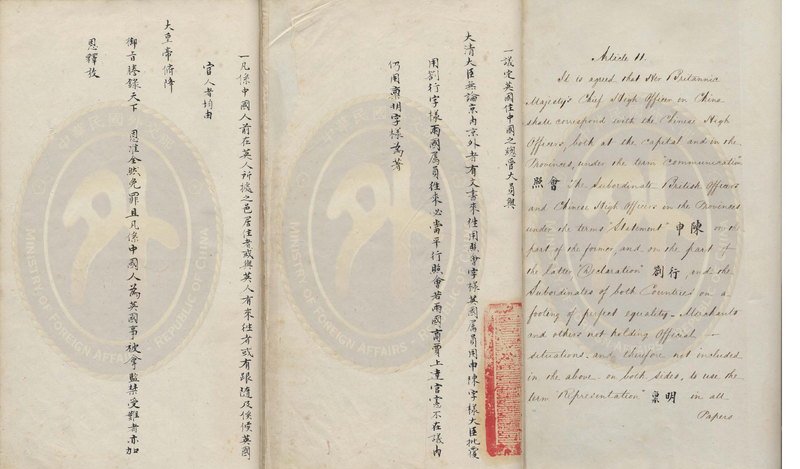 Article 11.
It is agreed that Her Britannic
Majesty's Chief High Officer in China
shall correspond with the Chinese High
Officers, both at the capital and in the
Provinces, under the term "Communication"
照會 The Subordinate British Officers
and Chinese High Officers in the Provinces
under the terms "Statement" 申陳 on the
part of the former, and on the part of
the latter "Declaration" 劄行, and the
Subordinates of both Countries on a
footing of perfect equality. Merchants
and others not holding Official
situations and therefore not included
in the above on both sides, to use the
term "Representation" 稟明 in all
Papers
一議定英國住中國之總管大員與
大清大臣無論京內京外者有文書來往用照會字樣英國屬員用申陳字樣大臣批覆
用劄行字樣兩國屬員往來必當平行照會若兩國商賈上達官憲不在議內
仍用稟明字樣為著
一凡係中國人前在英人所據之邑居住者或與英人有來往者或有跟隨及俟候英國
官人者均由
大皇帝俯降
御旨謄錄天下 恩准全然免罪且凡係中國人為英國事被拿監禁受難者亦加
恩釋放
MINISTRY OF FOREIGN AFFAIRS